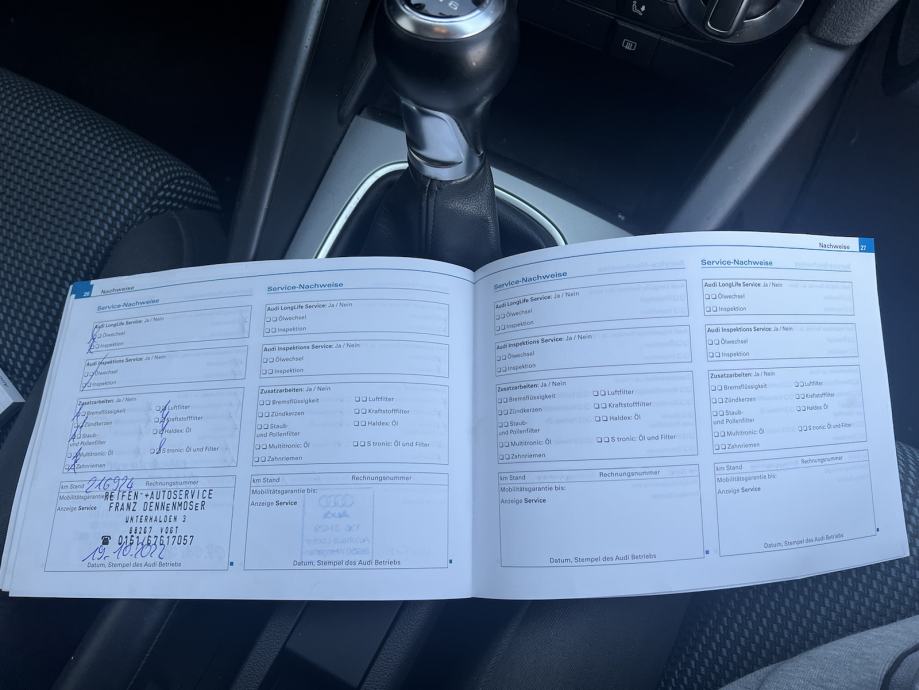 26 Nachweise
Service-Nachweise
Audi LongLife Service: Ja / Nein
Ölwechsel
Inspektion
Audi Inspektions Service: Ja / Nein
Ölwechsel
Inspektion
Zusatzarbeiten: Ja / Nein
Bremsflüssigkeit
Zündkerzen
Staub-
und Pollenfilter
Multitronic: Öl
Zahnriemen
Luftfilter
Kraftstofffilter
Haldex: Öl
S tronic: Öl und Filter
km Stand 216924 Rechnungsnummer
Mobilitätsgarantie
Anzeige
REIFEN-+AUTOSERVICE
FRANZ DENNENMOSER
UNTERHALDEN 3
88267 VOGT
☎ 0151/67617057
19.10.2022
Datum, Stempel des Audi Betriebs
Service-Nachweise
Audi LongLife Service: Ja / Nein
Ölwechsel
Inspektion
Audi Inspektions Service: Ja / Nein
Ölwechsel
Inspektion
Zusatzarbeiten: Ja / Nein
Bremsflüssigkeit
Zündkerzen
Staub-
und Pollenfilter
Multitronic: Öl
Zahnriemen
Luftfilter
Kraftstofffilter
Haldex: Öl
S tronic: Öl und Filter
km Stand Rechnungsnummer
Mobilitätsgarantie bis:
Anzeige Service
Datum, Stempel des Audi Betriebs
Service-Nachweise
Audi LongLife Service: Ja / Nein
Ölwechsel
Inspektion
Audi Inspektions Service: Ja / Nein
Ölwechsel
Inspektion
Zusatzarbeiten: Ja / Nein
Bremsflüssigkeit
Zündkerzen
Staub-
und Pollenfilter
Multitronic: Öl
Zahnriemen
Luftfilter
Kraftstofffilter
Haldex: Öl
S tronic: Öl und Filter
km Stand Rechnungsnummer
Mobilitätsgarantie bis:
Anzeige Service
Datum, Stempel des Audi Betriebs
Nachweise 27
Service-Nachweise
Audi LongLife Service: Ja / Nein
Ölwechsel
Inspektion
Audi Inspektions Service: Ja / Nein
Ölwechsel
Inspektion
Zusatzarbeiten: Ja / Nein
Bremsflüssigkeit
Zündkerzen
Staub-
und Pollenfilter
Multitronic: Öl
Zahnriemen
Luftfilter
Kraftstofffilter
Haldex: Öl
S tronic: Öl und Filter
km Stand Rechnungsnummer
Mobilitätsgarantie bis:
Anzeige Service
Datum, Stempel des Audi Betriebs